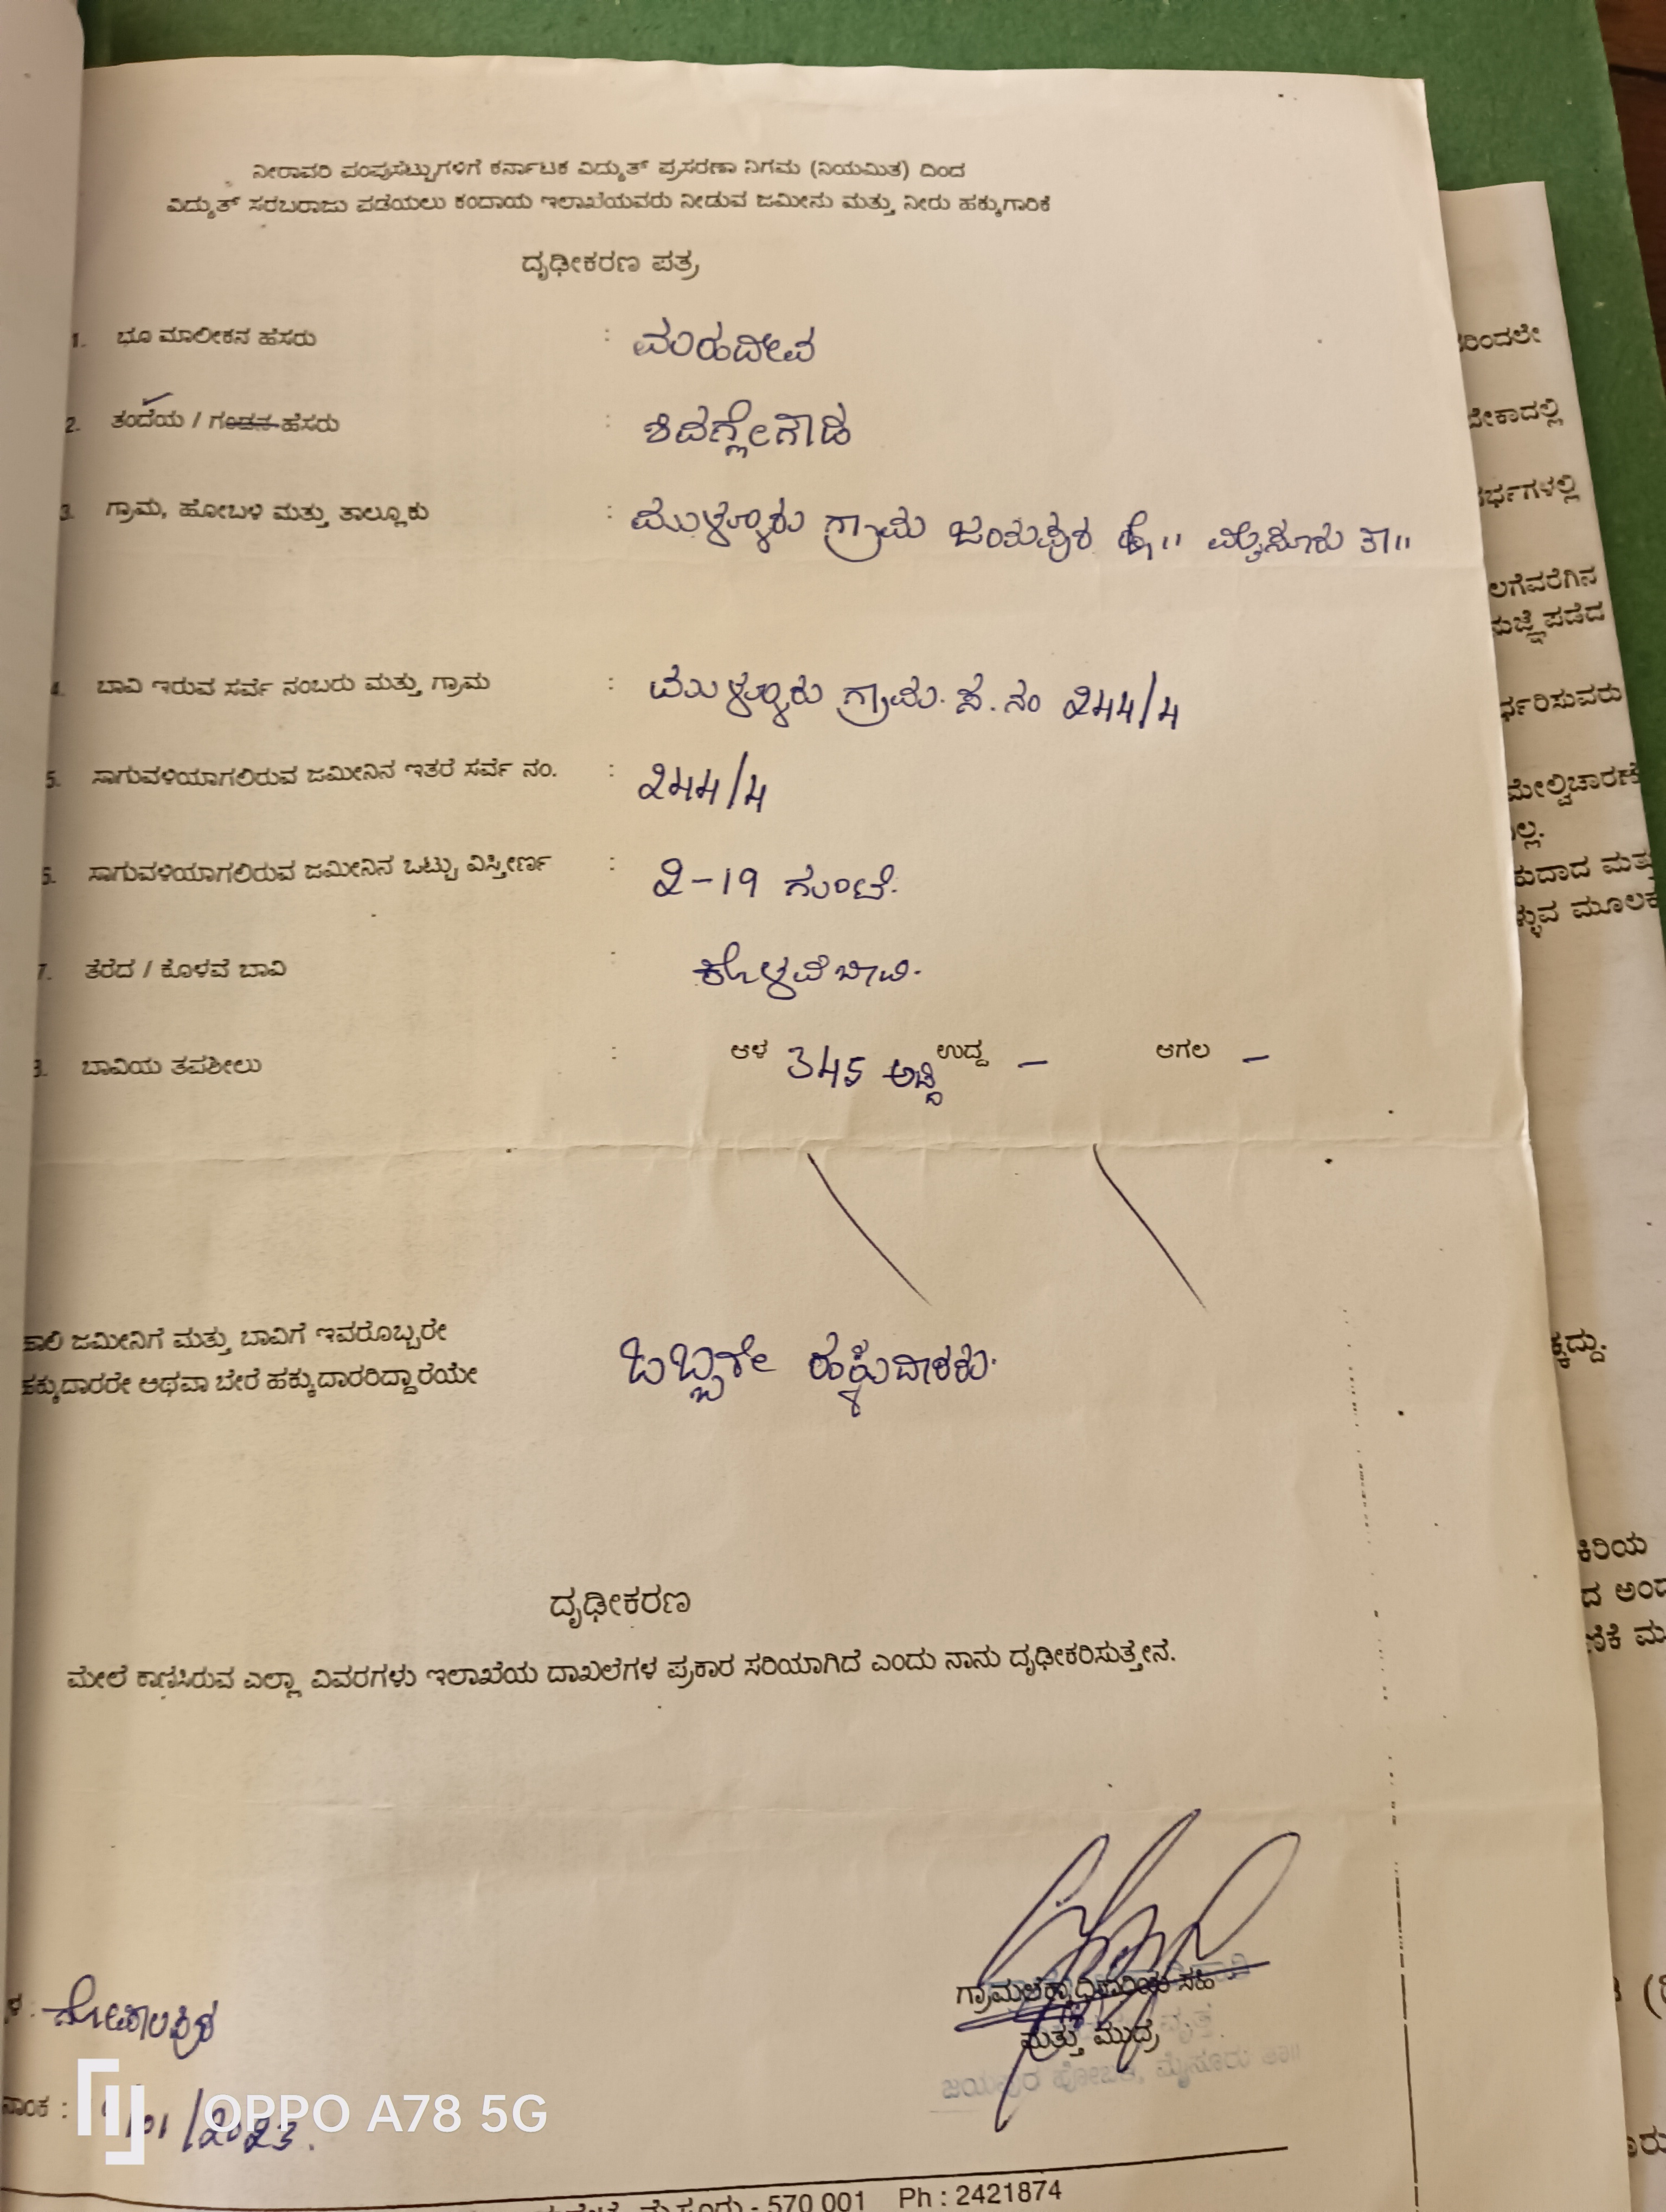 ನೀರಾವರಿ ಪಂಪುಸೆಟ್ಟುಗಳಿಗೆ ಕರ್ನಾಟಕ ವಿದ್ಯುತ್ ಪ್ರಸರಣಾ ನಿಗಮ (ನಿಯಮಿತ) ದಿಂದ
ವಿದ್ಯುತ್ ಸರಬರಾಜು ಪಡೆಯಲು ಕಂದಾಯ ಇಲಾಖೆಯವರು ನೀಡುವ ಜಮೀನು ಮತ್ತು ನೀರು ಹಕ್ಕುಗಾರಿಕೆ
ದೃಢೀಕರಣ ಪತ್ರ
1. ಭೂ ಮಾಲೀಕನ ಹೆಸರು : ಮಹದೇವ
2. ತಂದೆಯ / ಗಂಡನ ಹೆಸರು :
3. ಗ್ರಾಮ, ಹೋಬಳಿ ಮತ್ತು ತಾಲ್ಲೂಕು : ಮುಳ್ಳೂರು ಗ್ರಾಮ ಜಯಪುರ ಹೋ" ಮೈಸೂರು ತಾ"
4. ಬಾವಿ ಇರುವ ಸರ್ವೆ ನಂಬರು ಮತ್ತು ಗ್ರಾಮ : ಮುಳ್ಳೂರು ಗ್ರಾಮ. ಸ.ನಂ 244/4
5. ಸಾಗುವಳಿಯಾಗಲಿರುವ ಜಮೀನಿನ ಇತರೆ ಸರ್ವೆ ನಂ. : 244/4
6. ಸಾಗುವಳಿಯಾಗಲಿರುವ ಜಮೀನಿನ ಒಟ್ಟು ವಿಸ್ತೀರ್ಣ : 2-19 ಗುಂಟೆ.
7. ತೆರೆದ / ಕೊಳವೆ ಬಾವಿ : ಕೊಳವೆ ಬಾವಿ.
8. ಬಾವಿಯ ತಪಶೀಲು : ಆಳ 345 ಅಡಿ ಉದ್ದ - ಅಗಲ -
ಖಾಲಿ ಜಮೀನಿಗೆ ಮತ್ತು ಬಾವಿಗೆ ಇವರೊಬ್ಬರೇ
ಹಕ್ಕುದಾರರೇ ಅಥವಾ ಬೇರೆ ಹಕ್ಕುದಾರರಿದ್ದಾರೆಯೇ ಒಬ್ಬರೇ ಹಕ್ಕುದಾರರು.
ದೃಢೀಕರಣ
ಮೇಲೆ ಕಾಣಿಸಿರುವ ಎಲ್ಲಾ ವಿವರಗಳು ಇಲಾಖೆಯ ದಾಖಲೆಗಳ ಪ್ರಕಾರ ಸರಿಯಾಗಿದೆ ಎಂದು ನಾನು ದೃಢೀಕರಿಸುತ್ತೇನೆ.
ಗ್ರಾಮಲೆಕ್ಕಾಧಿಕಾರಿಯ ಸಹಿ
ಮತ್ತು ಮುದ್ರೆ
ಜಯಪುರ ಹೋಬಳಿ, ಮೈಸೂರು ತಾ॥
ಳ : ಗೋಪಾಲಪುರ
ನಾಂಕ : /01/2023.
OPPO A78 5G
ಮೈಸೂರು - 570 001 Ph : 2421874
ರಿಂದಲೇ
ಬೇಕಾದಲ್ಲಿ
ರ್ಭಗಳಲ್ಲಿ
ಲಗೆವರೆಗಿನ
ಪಡೆದ
ರ್ಧರಿಸುವರು
ಮೇಲ್ವಿಚಾರಣೆ
ಲ್ಲ.
ಕುದಾದ ಮತ್ತು
ಳ್ಳುವ ಮೂಲಕ
ಕ್ಕದ್ದು.
ಕಿರಿಯ
ದ ಅಂದ
ಣಿಕೆ ಮ